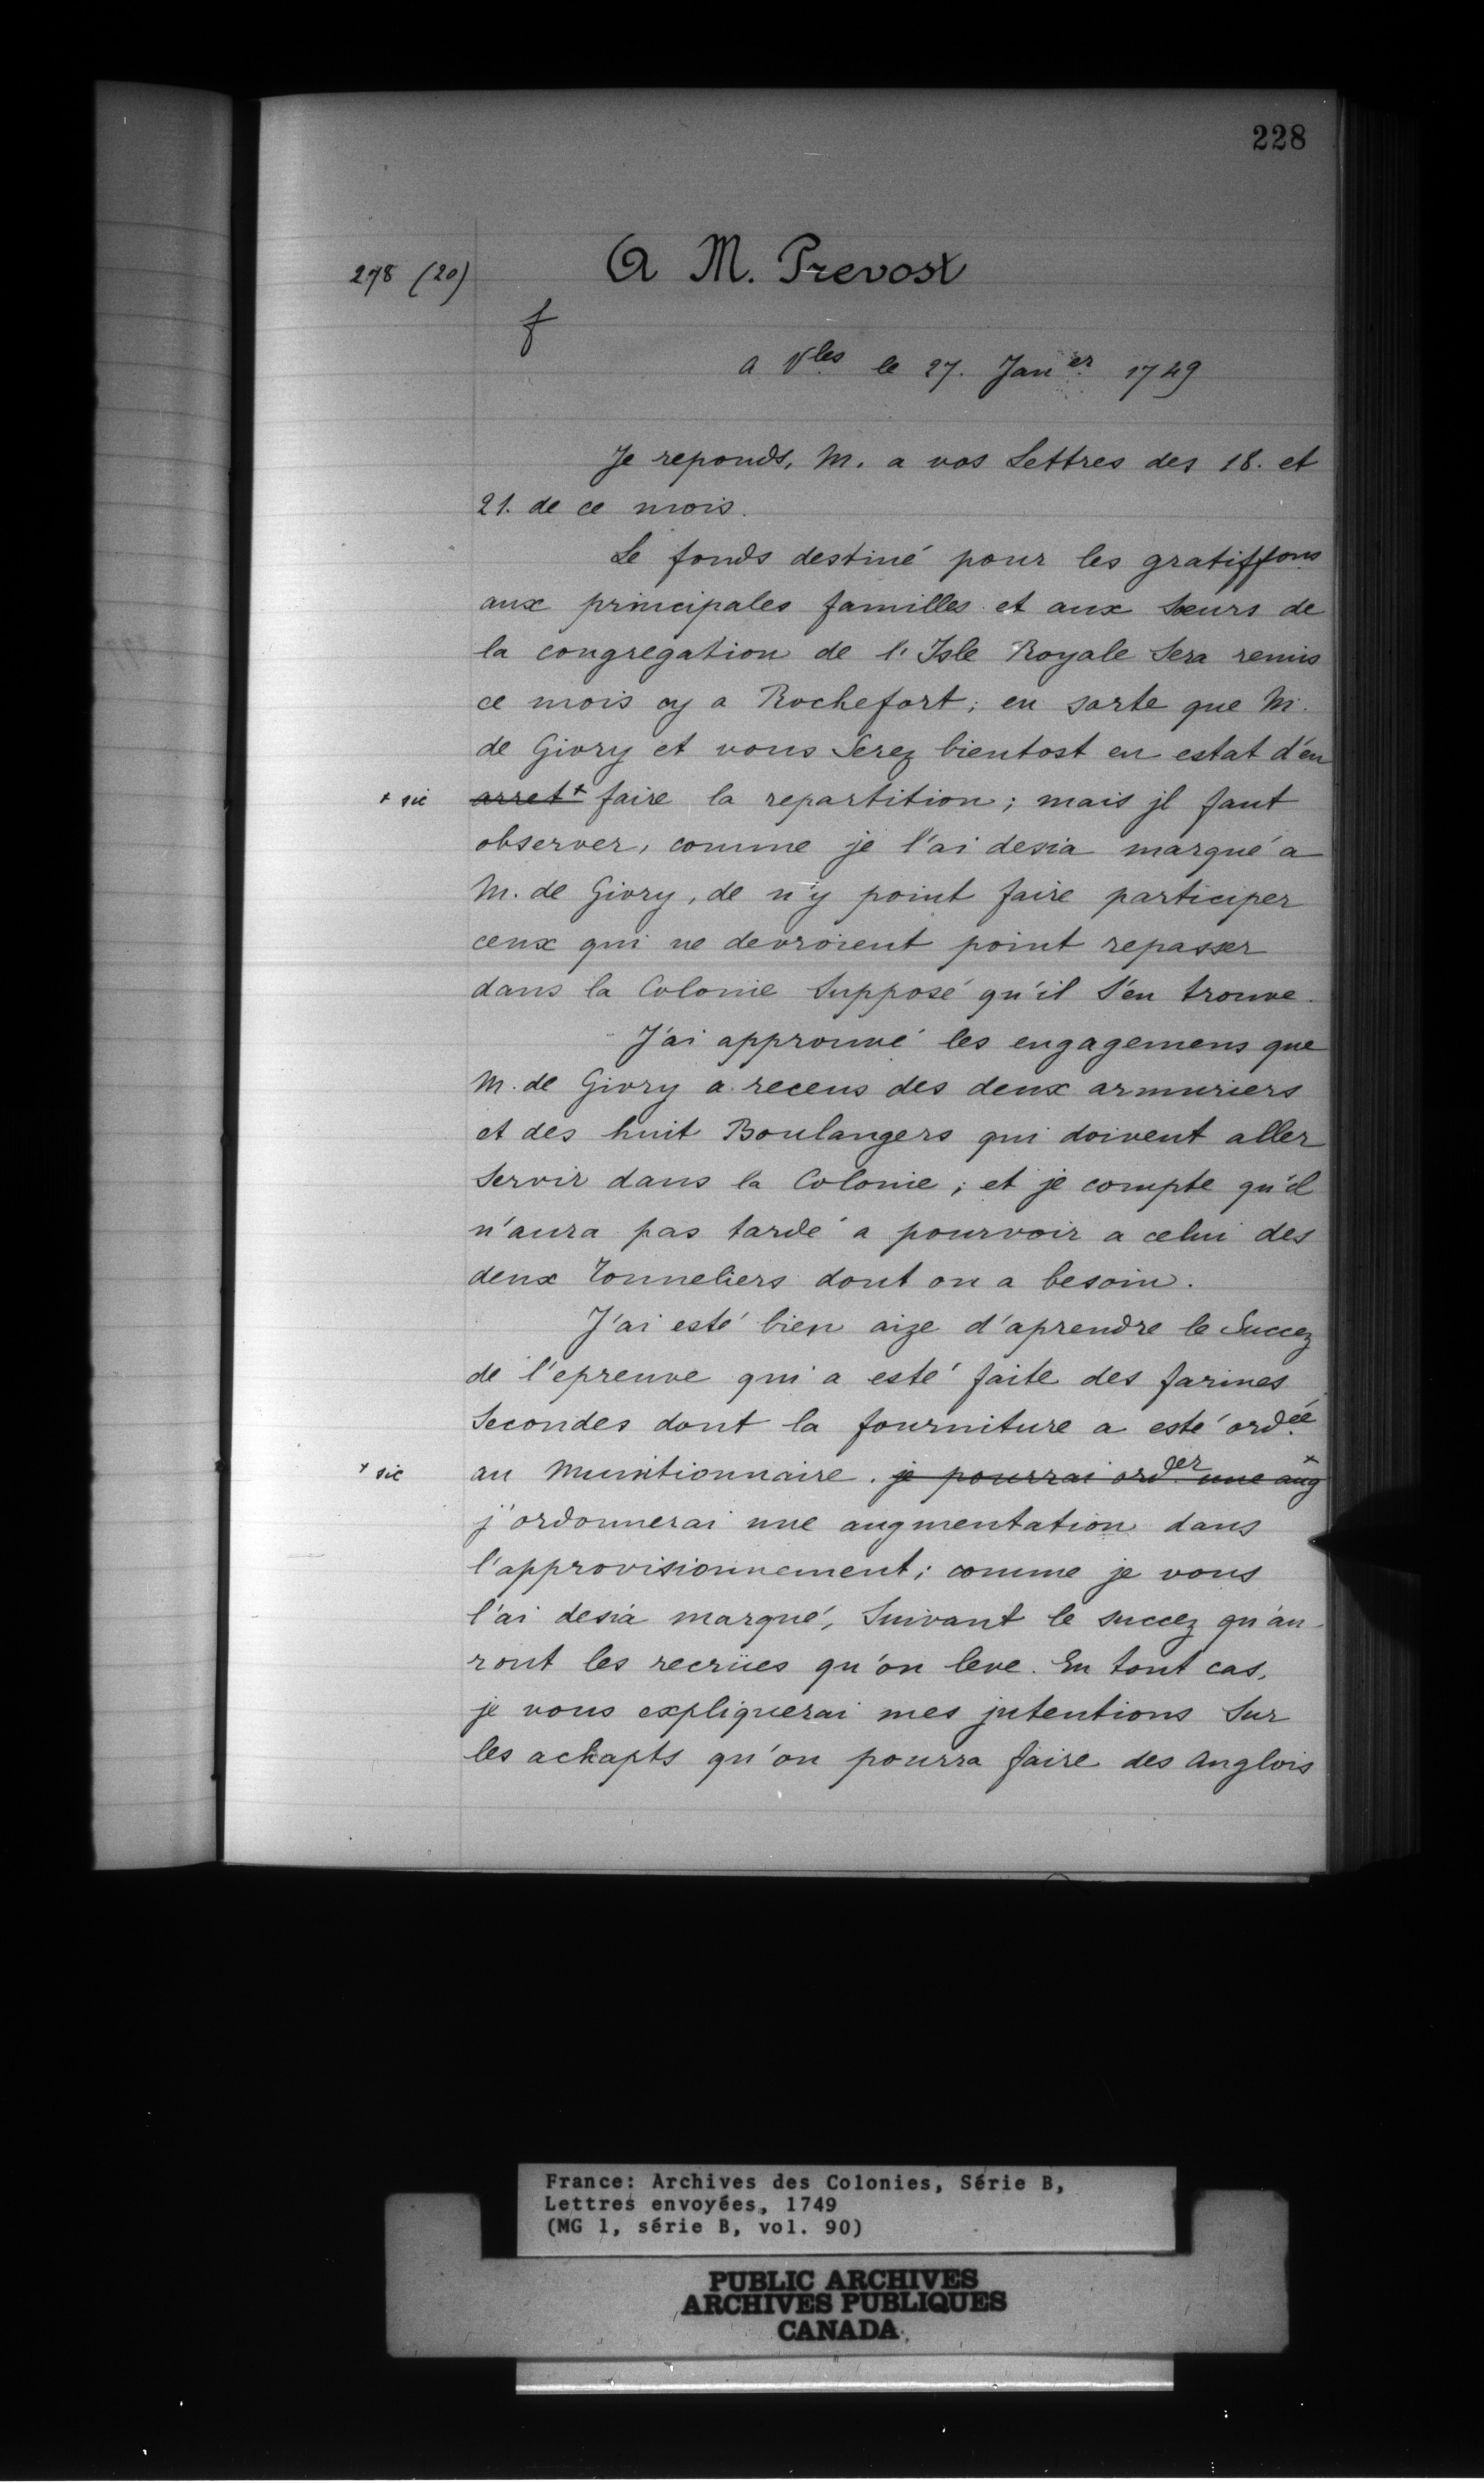 228
278 (20)
A M. Prevost
f
a Vles le 27. Janer 1749
Je reponds, M. a vos Lettres des 18. et
21. de ce mois.
Le fonds destiné pour les gratiffons
aux principales familles et aux Sœurs de
la congregation de l'Isle Royale Sera remis
ce mois cy a Rochefort; en sorte que M.
de Givry et vous Serez bientost en estat d'en
+ sic
arret+ faire la repartition; mais jl faut
observer, comme je l'ai desia marqué a
M. de Givry, de n'y point faire participer
ceux qui ne devroient point repasser
dans la Colonie Supposé qu'il S'en trouve.
J'ai approuvé les engagemens que
M. de Givry a receus des deux armuriers
et des huit Boulangers qui doivent aller
Servir dans la Colonie; et je compte qu'il
n'aura pas tardé a pourvoir a celui des
deux Tonneliers dont on a besoin.
J'ai esté bien aize d'aprendre le Succez
de l'epreuve qui a esté faite des farines
Secondes dont la fourniture a esté ordée
+ sic
au Munitionnaire. je pourrai order une aug+
j'ordonnerai une augmentation dans
l'approvisionnement; comme je vous
l'ai desia marqué, Suivant le succez qu'au-
ront les recrües qu'on leve. En tout cas,
je vous expliquerai mes jntentions Sur
les achapts qu'on pourra faire des Anglois
France: Archives des Colonies, Série B,
Lettres envoyées, 1749
(MG 1, série B, vol. 90)
PUBLIC ARCHIVES
ARCHIVES PUBLIQUES
CANADA